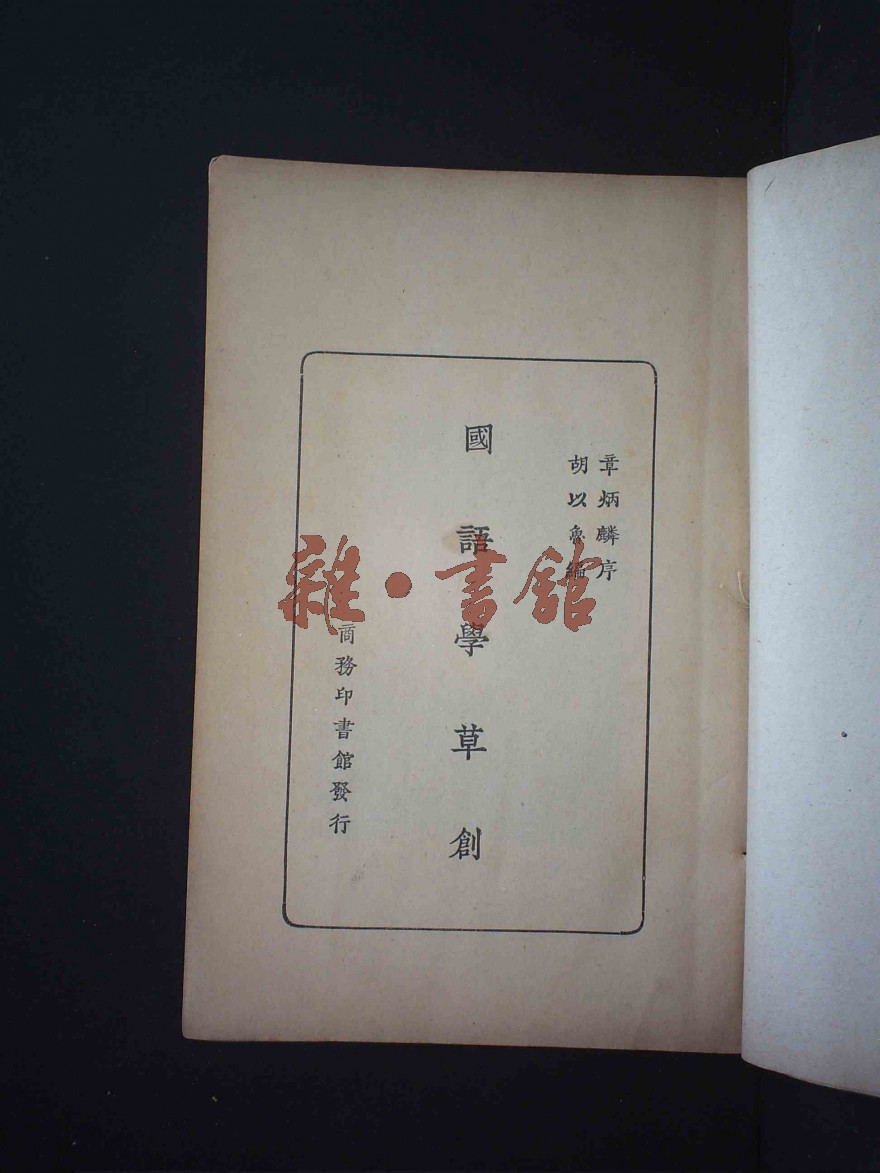 章炳麟序
胡以魯編
國語學草創
商務印書館發行
雜·書館